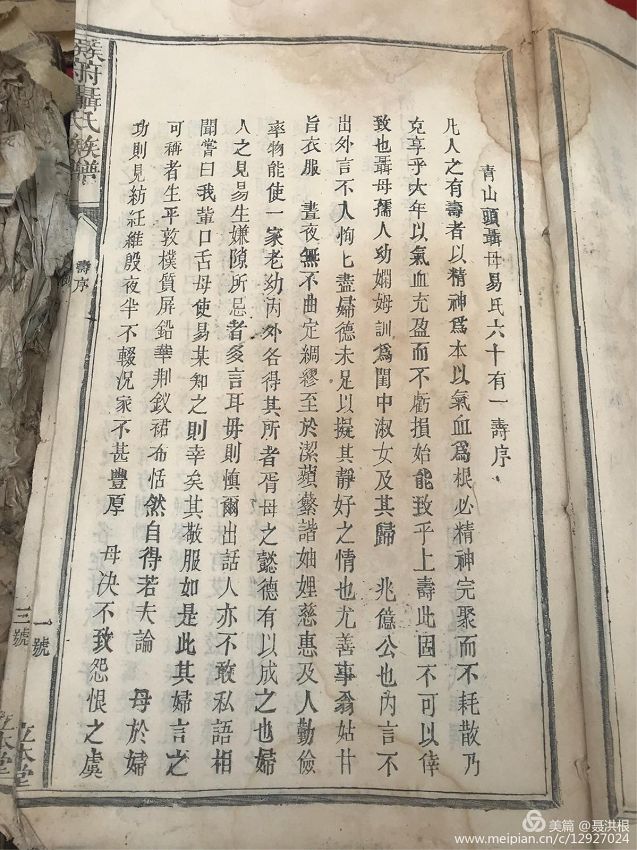 青山頭聶母易氏六十有一壽序
凡人之有壽者以精神爲本以氣血爲根必精神完聚而不耗散乃
克享乎大年以氣血充盈而不虧損始能致乎上壽此固不可以倖
致也聶母孺人幼嫻姆訓爲閨中淑女及其歸 兆僖公也內言不
出外言不入恂匕盡婦德未足以擬其靜好之情也尤善事翁姑甘
旨衣服 晝夜無不曲定綢繆至於潔蘋蘩諧妯娌慈惠及人勤儉
率物能使一家老幼內外各得其所者胥母之懿德有以成之也婦
人之見易生嫌隙所忌者多言耳毋則慎爾出話人亦不敢私語相
聞嘗曰我輩口舌毋使易某知之則幸矣其敬服如是此其婦言之
可稱者生平敦樸質屏鉛華荆釵裙布恬然自得若夫論 母於婦
功則見紡紅維殷夜半不輟況家不甚豐厚 母決不致怨恨之虞
聶氏族譜
壽序
一號
三號
立本堂
立本堂
美篇 @聂洪根
www.meipian.cn/c/12927024